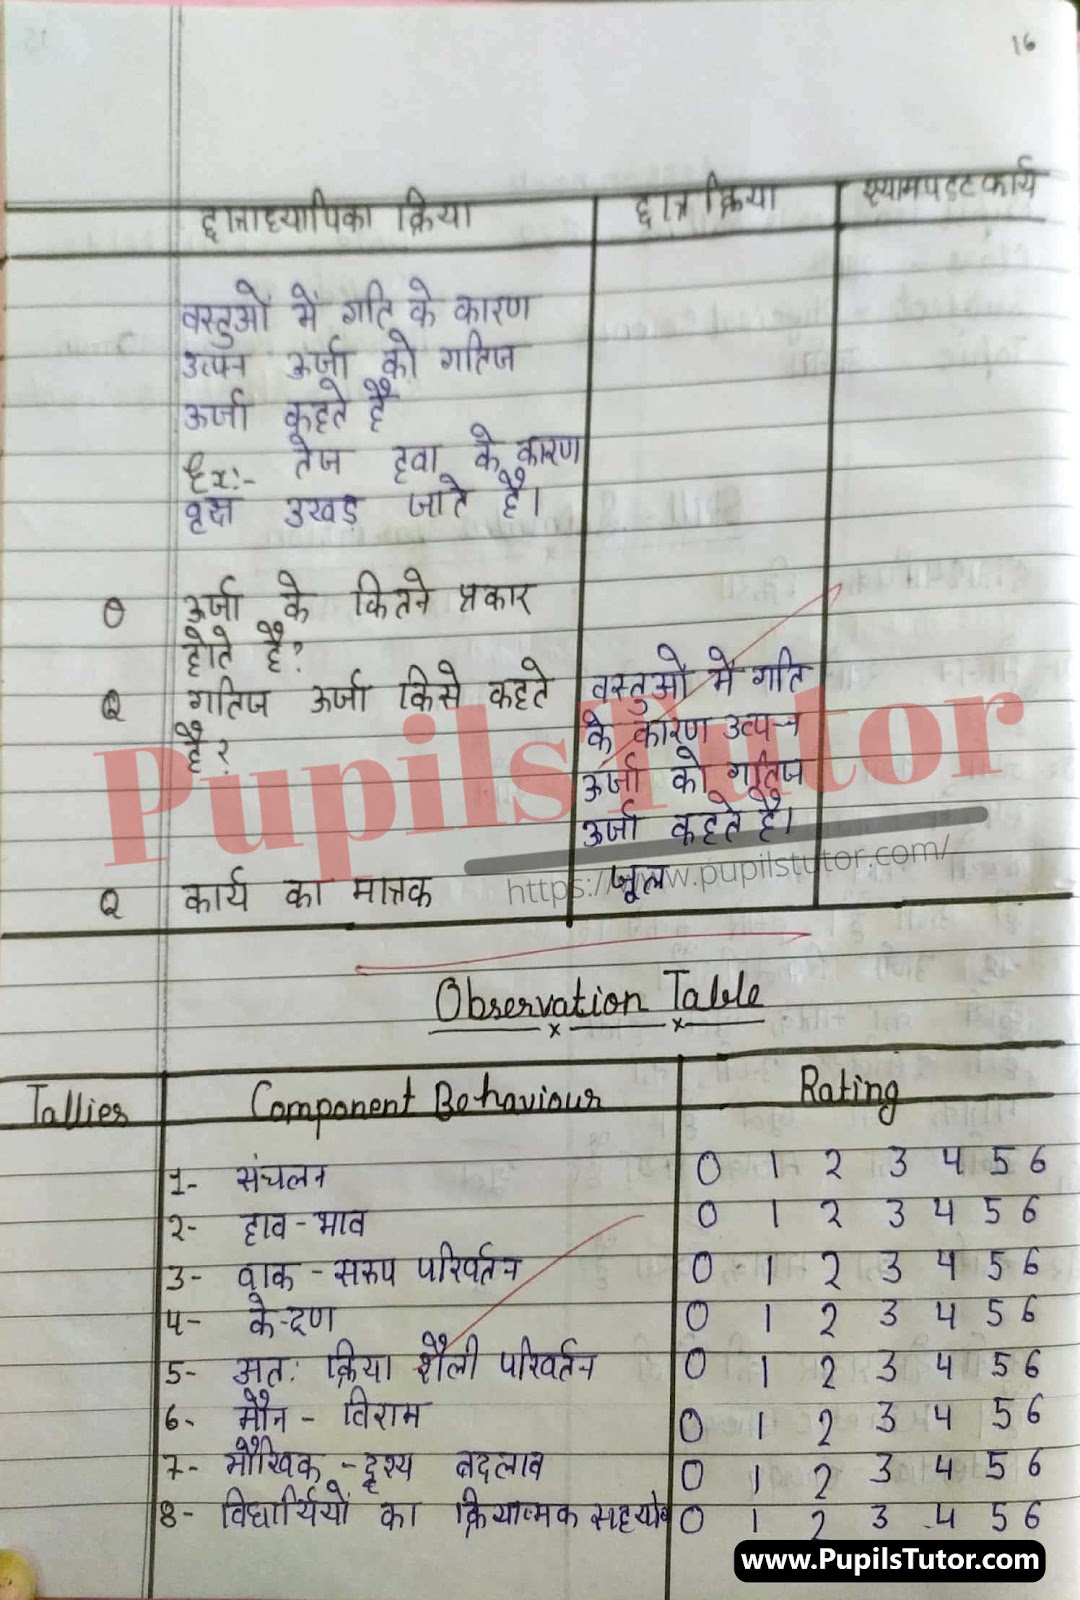 16
छात्राध्यापिका क्रिया छात्र क्रिया श्यामपट्ट कार्य
वस्तुओं में गति के कारण
उत्पन्न ऊर्जा को गतिज
ऊर्जा कहते है
Ex:- तेज हवा के कारण
वृक्ष उखड़ जाते है।
Q ऊर्जा के कितने प्रकार
होते है?
Q गतिज ऊर्जा किसे कहते
है?
वस्तुओं में गति
के कारण उत्पन्न
ऊर्जा को गतिज
ऊर्जा कहते है।
Q कार्य का मात्रक जूल
PupilsTutor
https://www.pupilstutor.com/
Observation Table
Tallies Component Behaviour Rating
1- संचलन 0 1 2 3 4 5 6
2- हाव-भाव 0 1 2 3 4 5 6
3- वाक-सरुप परिवर्तन 0 1 2 3 4 5 6
4- केन्द्रण 0 1 2 3 4 5 6
5- अत: क्रिया शैली परिवर्तन 0 1 2 3 4 5 6
6- मौन - विराम 0 1 2 3 4 5 6
7- मौखिक - दृश्य बदलाव 0 1 2 3 4 5 6
8- विद्यार्थियों का क्रियात्मक सहयोग 0 1 2 3 4 5 6
www.PupilsTutor.com